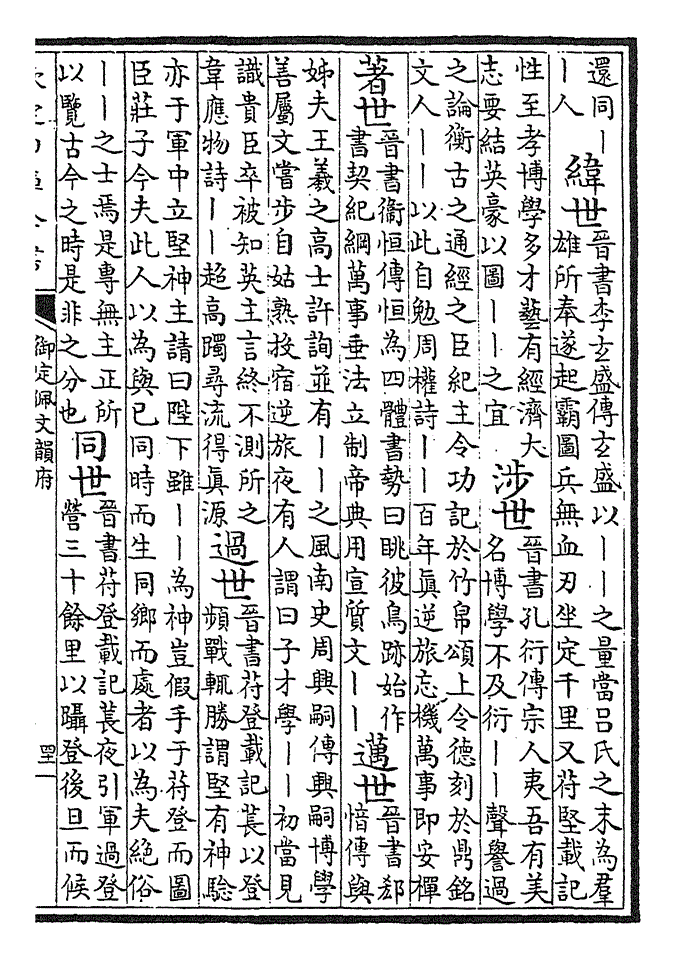 還同｜
｜人
緯世
晉書李玄盛傳玄盛以｜｜之量當呂氏之末為羣
雄所奉遂起霸圖兵無血刃坐定千里又苻堅載記
性至孝博學多才藝有經濟大
志要結英豪以圖｜｜之宜
涉世
晉書孔衍傳宗人夷吾有美
名博學不及衍｜｜聲譽過
之論衡古之通經之臣紀主令功記於竹帛頌上令德刻於鼎銘
文人｜｜以此自勉周權詩｜｜百年眞逆旅忘機萬事即安禪
著世
晉書衛恒傳恒為四體書勢曰眺彼鳥跡始作
書契紀綱萬事垂法立制帝典用宣質文｜｜
邁世
晉書郄
愔傳與
姊夫王羲之高士許詢並有｜｜之風南史周興嗣傳興嗣博學
善屬文嘗步自姑熟投宿逆旅夜有人謂曰子才學｜｜初當見
識貴臣卒被知英主言終不測所之
韋應物詩｜｜超高躅尋流得眞源
過世
晉書苻登載記萇以登
頻戰輒勝謂堅有神驗
亦于軍中立堅神主請曰陛下雖｜｜為神豈假手于苻登而圖
臣莊子今夫此人以為與已同時而生同鄉而處者以為夫絕俗
｜｜之士焉是專無主正所
以覽古今之時是非之分也
同世
晉書苻登載記萇夜引軍過登
營三十餘里以躡登後旦而候
御定佩文韻府